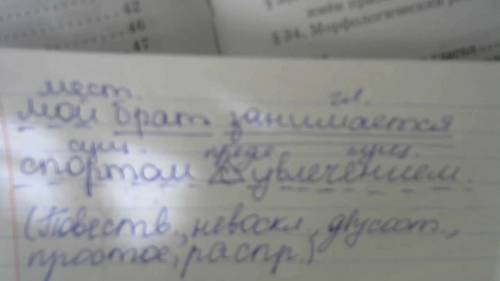 42
46
47
§ 34. Морфологический
мест. гл.
мой брат занимается
сущ. предл сущ.
спортом с увлечением.
(Повеств., невоскл, двусост.,
простое, распр.)